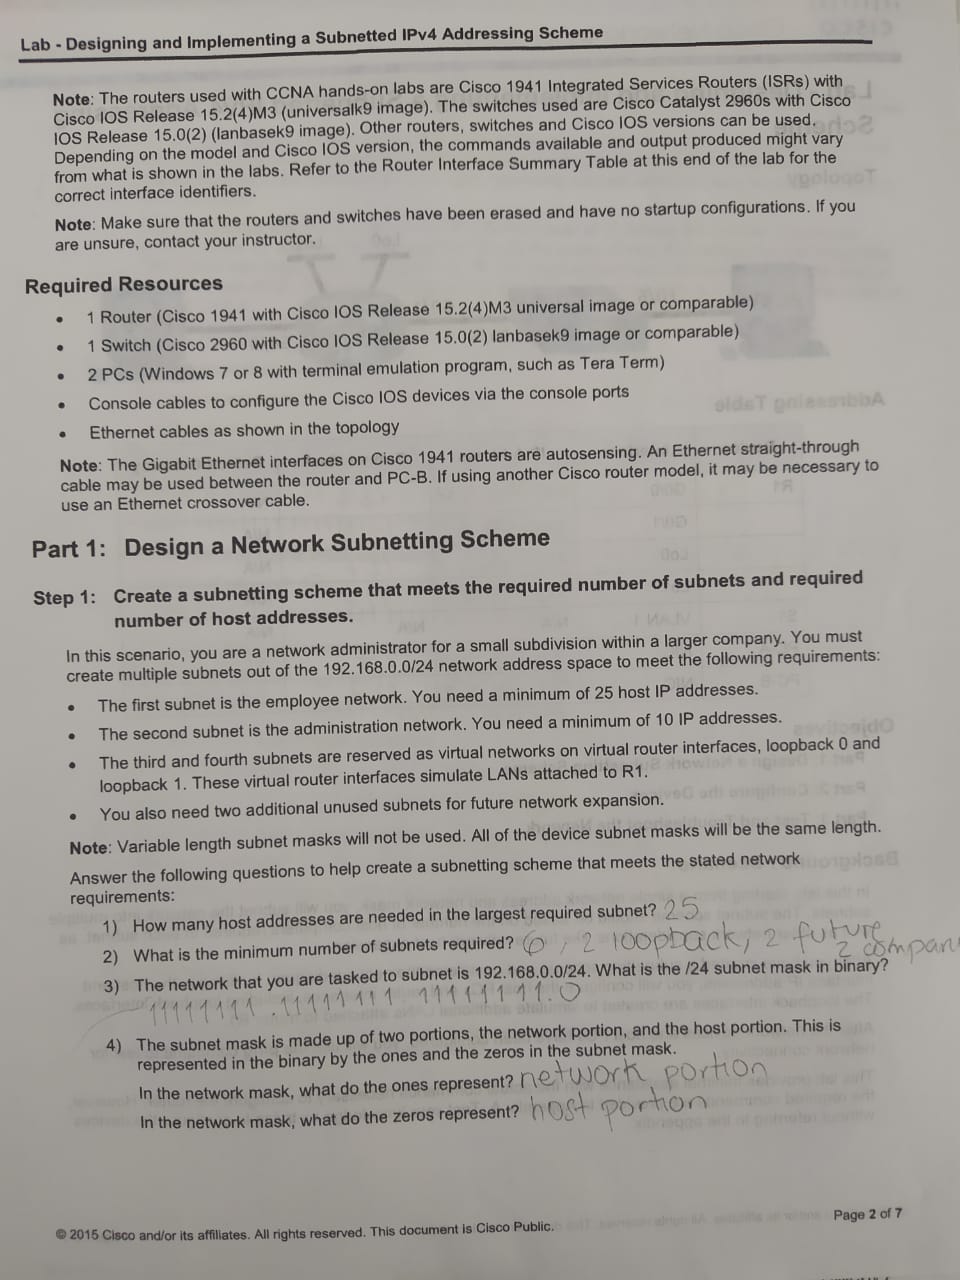 Lab - Designing and Implementing a Subnetted IPv4 Addressing Scheme
Note: The routers used with CCNA hands-on labs are Cisco 1941 Integrated Services Routers (ISRs) with
Cisco IOS Release 15.2(4)M3 (universalk9 image). The switches used are Cisco Catalyst 2960s with Cisco
IOS Release 15.0(2) (lanbasek9 image). Other routers, switches and Cisco IOS versions can be used.
Depending on the model and Cisco IOS version, the commands available and output produced might vary
from what is shown in the labs. Refer to the Router Interface Summary Table at this end of the lab for the
correct interface identifiers.
Note: Make sure that the routers and switches have been erased and have no startup configurations. If you
are unsure, contact your instructor.
Required Resources
• 1 Router (Cisco 1941 with Cisco IOS Release 15.2(4)M3 universal image or comparable)
• 1 Switch (Cisco 2960 with Cisco IOS Release 15.0(2) lanbasek9 image or comparable)
• 2 PCs (Windows 7 or 8 with terminal emulation program, such as Tera Term)
• Console cables to configure the Cisco IOS devices via the console ports
• Ethernet cables as shown in the topology
Note: The Gigabit Ethernet interfaces on Cisco 1941 routers are autosensing. An Ethernet straight-through
cable may be used between the router and PC-B. If using another Cisco router model, it may be necessary to
use an Ethernet crossover cable.
Part 1: Design a Network Subnetting Scheme
Step 1: Create a subnetting scheme that meets the required number of subnets and required
number of host addresses.
In this scenario, you are a network administrator for a small subdivision within a larger company. You must
create multiple subnets out of the 192.168.0.0/24 network address space to meet the following requirements:
• The first subnet is the employee network. You need a minimum of 25 host IP addresses.
• The second subnet is the administration network. You need a minimum of 10 IP addresses.
• The third and fourth subnets are reserved as virtual networks on virtual router interfaces, loopback 0 and
loopback 1. These virtual router interfaces simulate LANs attached to R1.
• You also need two additional unused subnets for future network expansion.
Note: Variable length subnet masks will not be used. All of the device subnet masks will be the same length.
Answer the following questions to help create a subnetting scheme that meets the stated network
requirements:
1) How many host addresses are needed in the largest required subnet? 25
2) What is the minimum number of subnets required? 6, 2 loopback, 2 future
2 compan
3) The network that you are tasked to subnet is 192.168.0.0/24. What is the /24 subnet mask in binary?
11111111.11111111.11111111.0
4) The subnet mask is made up of two portions, the network portion, and the host portion. This is
represented in the binary by the ones and the zeros in the subnet mask.
In the network mask, what do the ones represent? network portion
In the network mask, what do the zeros represent? host portion
© 2015 Cisco and/or its affiliates. All rights reserved. This document is Cisco Public.
Page 2 of 7